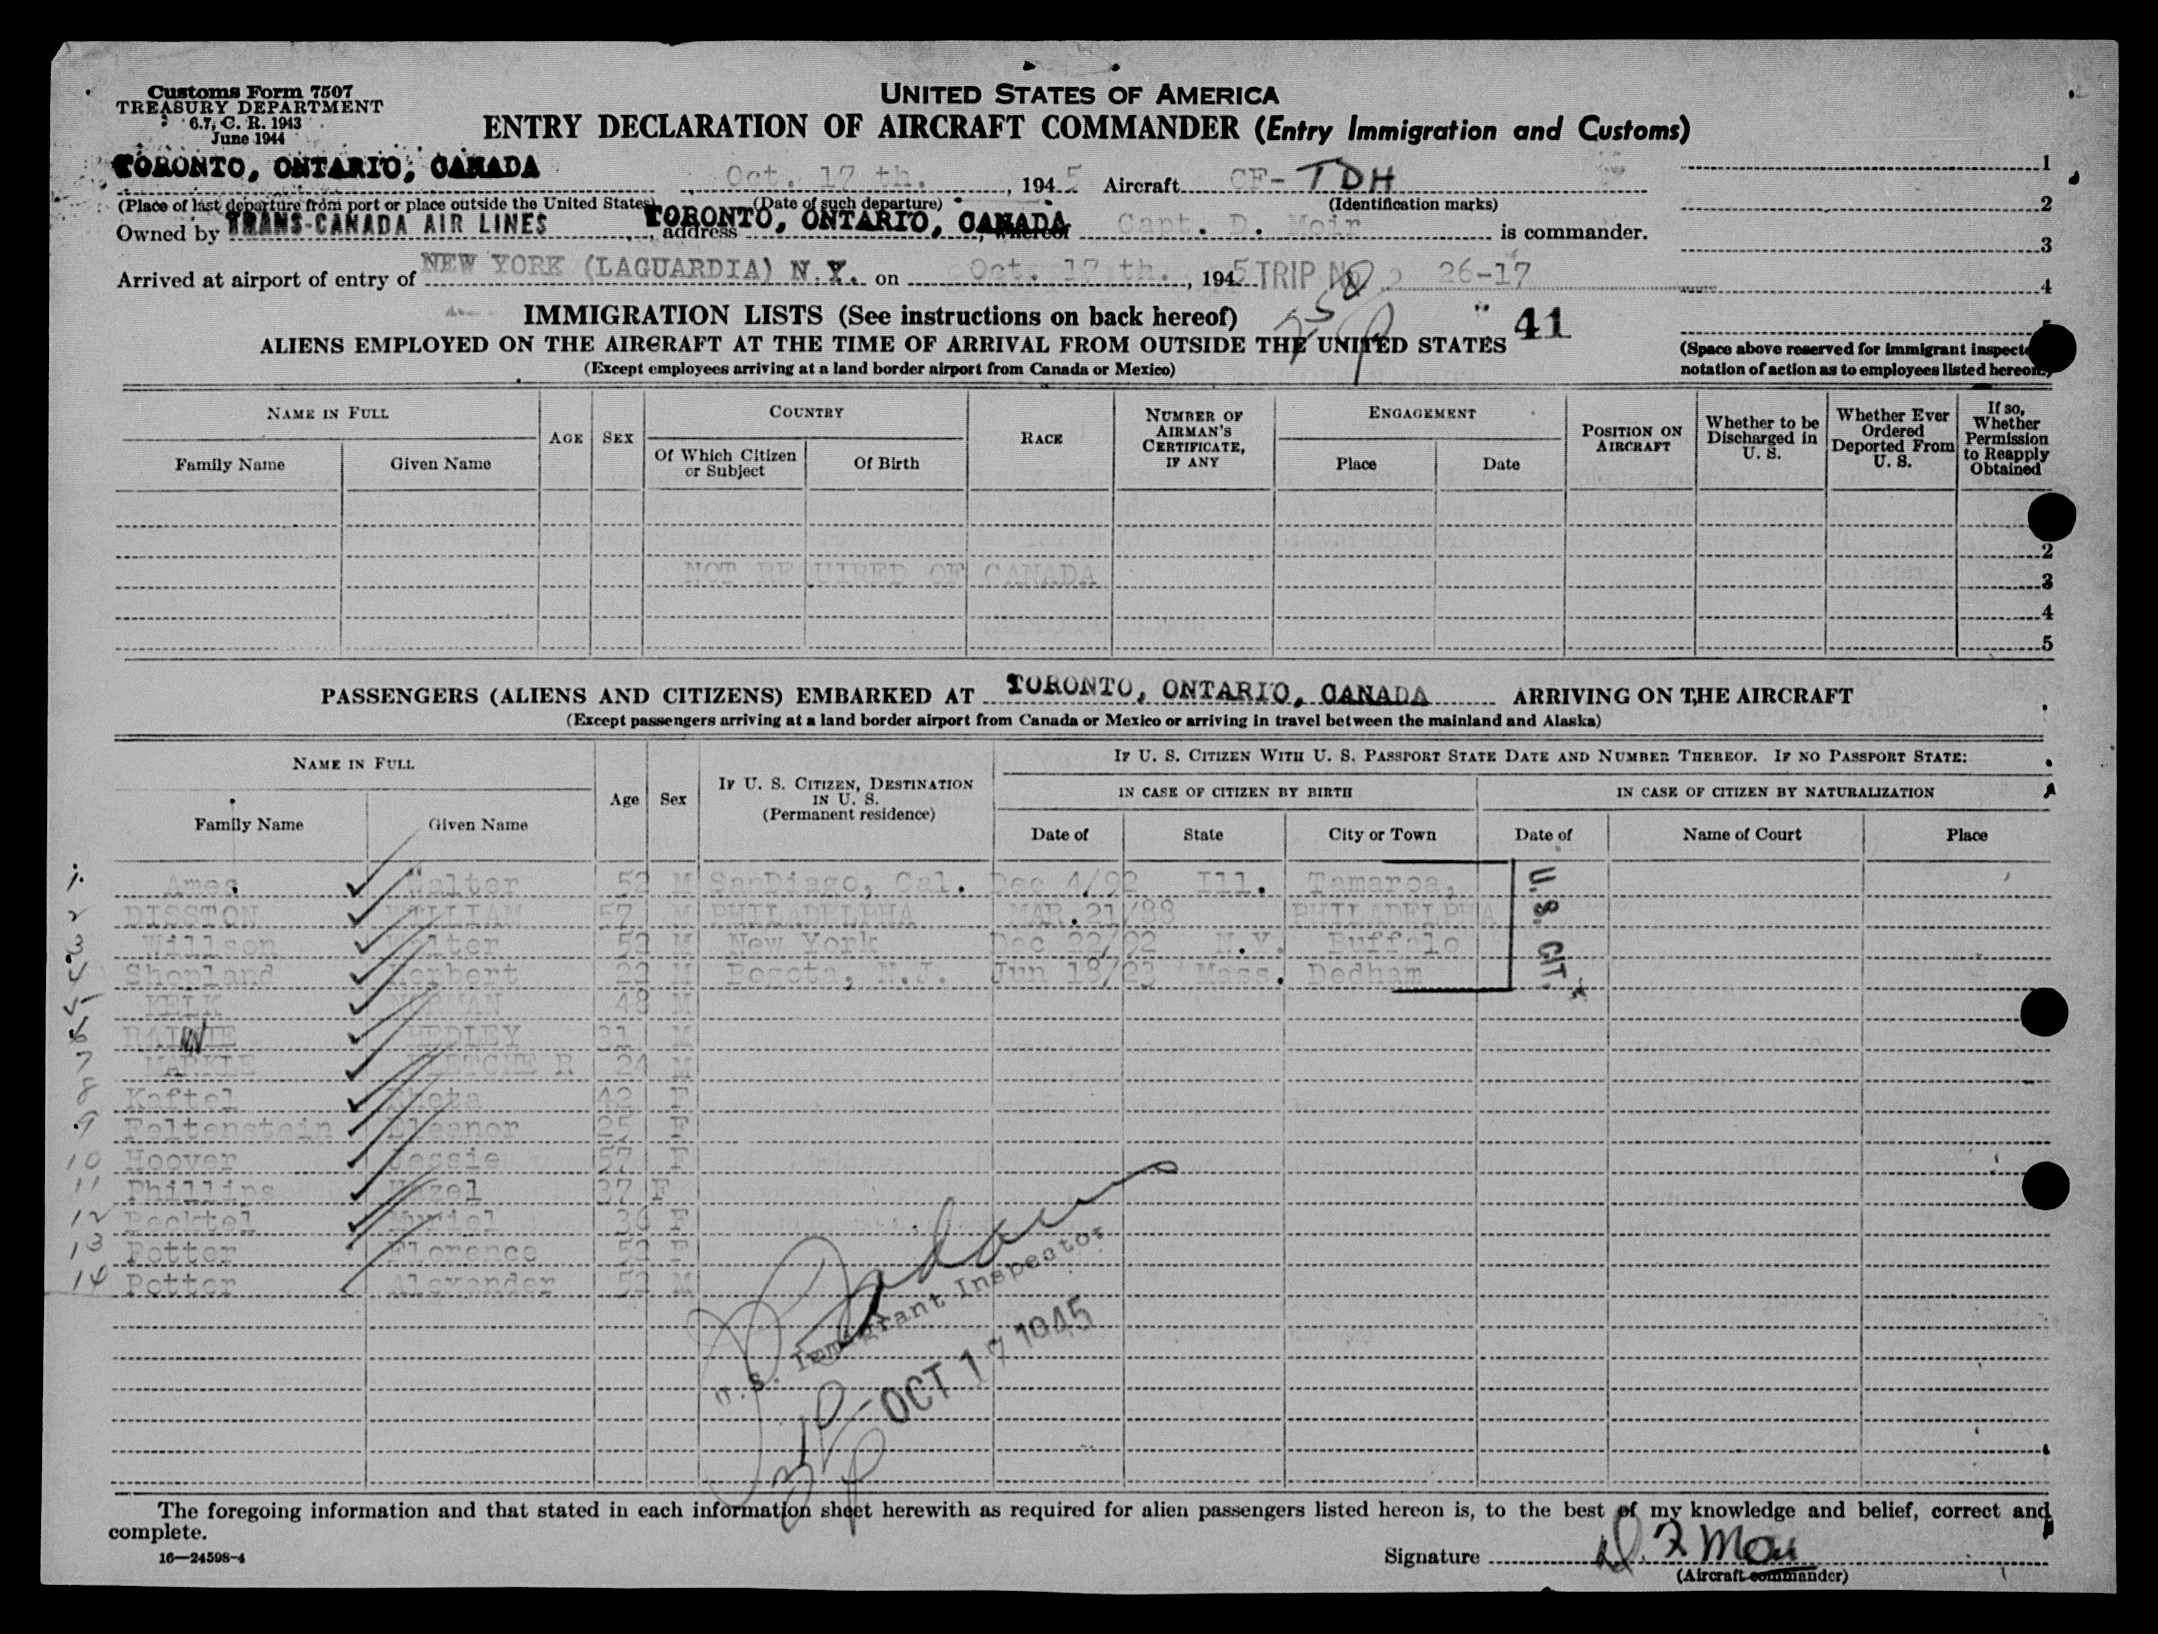 Customs Form 7507
TREASURY DEPARTMENT
6.7, C. R. 1943
June 1944
UNITED STATES OF AMERICA
ENTRY DECLARATION OF AIRCRAFT COMMANDER (Entry Immigration and Customs)
TORONTO, ONTARIO, CANADA Oct. 17 th. , 1945 Aircraft CF-TDH 1
(Place of last departure from port or place outside the United States) (Date of such departure) (Identification marks) 2
Owned by TRANS-CANADA AIR LINES , address TORONTO, ONTARIO, CANADA , whereof Capt. D. Moir is commander. 3
Arrived at airport of entry of NEW YORK (LAGUARDIA) N.Y. on Oct. 17 th. , 1945 TRIP No 26-17 4
IMMIGRATION LISTS (See instructions on back hereof) 41
ALIENS EMPLOYED ON THE AIRCRAFT AT THE TIME OF ARRIVAL FROM OUTSIDE THE UNITED STATES
(Except employees arriving at a land border airport from Canada or Mexico)
(Space above reserved for immigrant
notation of action as to employees listed hereon.)
NAME IN FULL AGE SEX COUNTRY RACE NUMBER OF AIRMAN'S CERTIFICATE, IF ANY ENGAGEMENT POSITION ON AIRCRAFT Whether to be Discharged in U. S. Whether Ever Ordered Deported From U. S. If so, Whether Permission to Reapply Obtained
Family Name Given Name Of Which Citizen or Subject Of Birth Place Date
2
NOT REQUIRED OF CANADA 3
4
5
PASSENGERS (ALIENS AND CITIZENS) EMBARKED AT TORONTO, ONTARIO, CANADA ARRIVING ON THE AIRCRAFT
(Except passengers arriving at a land border airport from Canada or Mexico or arriving in travel between the mainland and Alaska)
NAME IN FULL Age Sex IF U. S. CITIZEN, DESTINATION IN U. S. (Permanent residence) IF U. S. CITIZEN WITH U. S. PASSPORT STATE DATE AND NUMBER THEREOF. IF NO PASSPORT STATE:
IN CASE OF CITIZEN BY BIRTH IN CASE OF CITIZEN BY NATURALIZATION
Family Name Given Name Date of State City or Town Date of Name of Court Place
1. Ames Walter 52 M SanDiago, Cal. Dec 4/92 Ill. Tamaroa, U.S. CIT.
2 DISSTON WILLIAM 57 M PHILADELPHA MAR.21/88 PHILADELPHIA
3 Willson Walter 52 M New York Dec 22/92 N.Y. Buffalo
4 Shopland Herbert 22 M Bogota, N.J. Jun 18/23 Mass. Dedham
5 KELK NORMAN 48 M
6 HEDLEY 31 M
7 MARKLE 24 M
8 Kaftel 42 F
9 Feltenstein Eleanor 25 F
10 Hoover Jessie 57 F
11 Phillips Hazel 37 F
12 Becktel Muriel 36 F
13 Potter Florence 52 F
14 Potter Alexander 52 M
U.S. Immigrant Inspector
OCT 17 1945
The foregoing information and that stated in each information sheet herewith as required for alien passengers listed hereon is, to the best of my knowledge and belief, correct and
complete.
16—24598-4
Signature
(Aircraft commander)